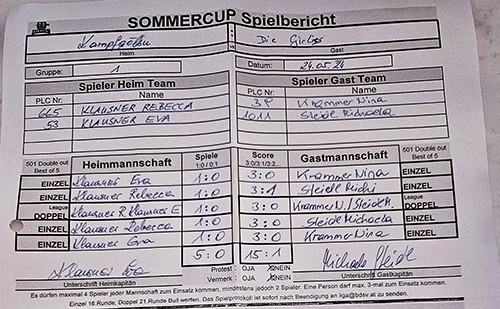 SOMMERCUP Spielbericht
Heim Gast
Gruppe: 1 Datum: 24.05.24
Spieler Heim Team Spieler Gast Team
PLC Nr: Name PLC Nr: Name
665 KLAUSNER REBECCA 38 Krammer Nina
53 KLAUSNER EVA 1011 Sleide Michaela
501 Double out Best of 5 Heimmannschaft Spiele 1:0 / 0:1 Score 3:0/3:1/3:2... Gastmannschaft 501 Double out Best of 5
EINZEL Klausner Eva 1:0 3:0 Krammer Nina EINZEL
EINZEL Klausner Rebecca 1:0 3:1 Sleide Michi EINZEL
League DOPPEL Klausner R. Klausner E 1:0 3:0 Krammer N./Sleide M. League DOPPEL
EINZEL Klausner Rebecca 1:0 3:0 Sleide Michaela EINZEL
EINZEL Klausner Eva 1:0 3:0 Krammer Nina EINZEL
5:0 15:1
Protest: OJA NEIN
Klausner Eva Vermerk: OJA NEIN Michaela Sleide
Unterschrift Heimkapitän Unterschrift Gastkapitän
Es dürfen maximal 4 Spieler jeder Mannschaft zum Einsatz kommen, mindestens jedoch 2 Spieler. Eine Person darf max. 3-mal zum Einsatz kommen.
Einzel 16.Runde, Doppel 21.Runde Bull werfen. Das Spielprotokoll ist sofort nach Beendigung an liga@bdsv.at zu senden.